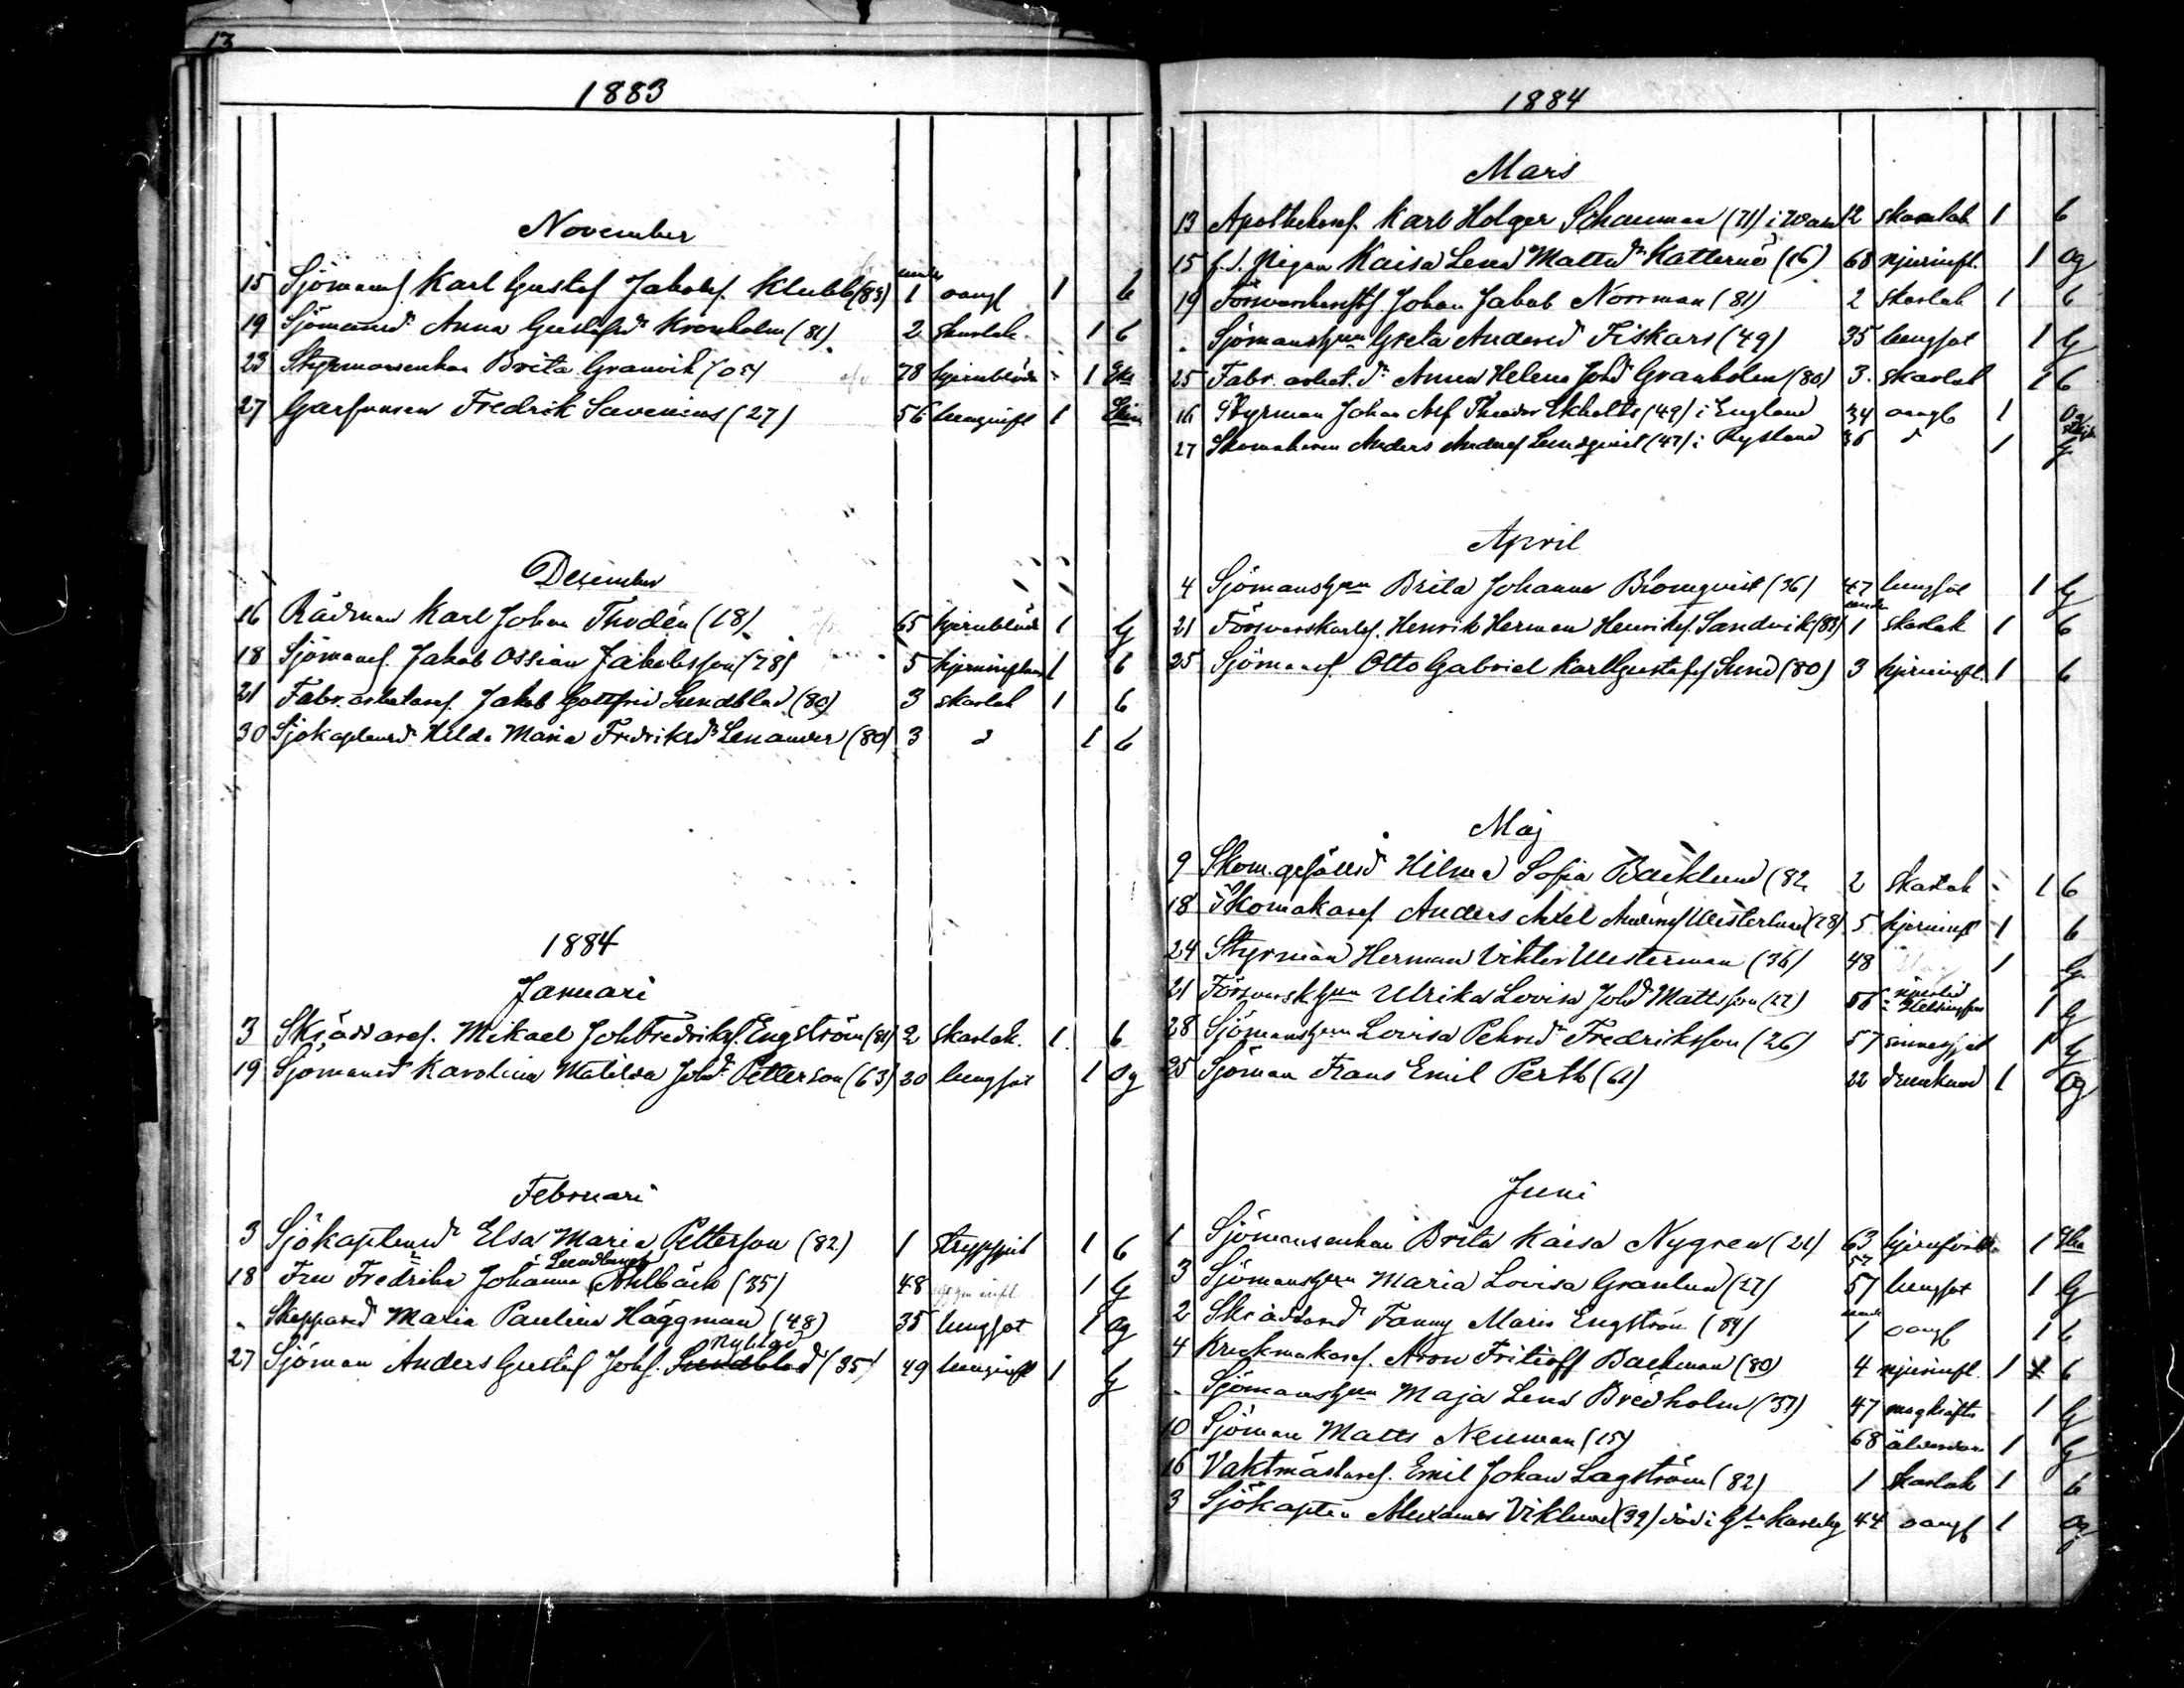 17
1883
November
15 Sjömansf. Karl Gustaf Jakobsf. Klubb (83) under 1 oangf 1 b
19 Sjömansd. Anna Gustafsdr Kronholm (81) 2 skarlak. 1 b
23 Styrmansenkan Brita Granvik (05) 78 hjernblödn 1 Eka
27 Garfvaren Fredrik Savenius (27) 56 lunginfl 1
December
16 Rådman Karl Johan Thodén (18) 65 hjernblödn 1 G
18 Sjömansf. Jakob Ossian Jakobsson (78) 5 hjerninflam 1 b
21 Fabr. arbetaref. Jakob Gottfrid Sundblad (80) 3 skarlak 1 b
30 Sjökaptensdr Hilda Maria Fredriksdr Lenander (80) 3 d 1 b
1884
Januari
3 Skräddaref. Mikael Joh Fredriksf. Engström (81) 2 skarlak. 1 b
19 Sjömansd Karolina Matilda Johdr Petterson (63) 20 lungsot 1 Og
Februari
3 Sjökaptensdr Elsa Maria Petterson (82) 1 strypsjuk 1 b
18 Fru Fredrika Johanna Ahlbäck (35) 48 1 G
" Skeppared Maria Paulina Häggman (48) 35 lungsot 1 Og
Nyblad
27 Sjöman Anders Gustaf Johf. Sundblad (35) 49 lunginfl 1 G
1884
Mars
13 Apothekaref. Karl Holger Schauman (71) i Wasa 12 skarlak 1 b
15 f.d. Pigan Kaisa Lena Mattsdr Katternö (16) 68 njurinfl. 1 Og
19 Försvarskarlsf. Johan Jakob Norrman (81) 2 skarlak 1 b
" Sjömanshun Greta Andersd Fiskars (49) 35 lungsot 1 G
25 Fabr. arbet. dr Anna Helena Johdr Granholm (80) 3 skarlak 1 b
16 Styrman Johan Alf Theodor Ekholts (49) i England 34 oangf 1 Og
27 Skomakaren Anders Andersf Lundqvist (47) i Ryssland 36 d 1 G
April
4 Sjömanshun Brita Johanna Blomqvist (36) 47 lungsot 1 G
21 Försvarskarlsf. Henrik Herman Henriksf. Sandvik (83) under 1 skarlak 1 b
25 Sjömansf. Otto Gabriel Karl Gustafsf Sund (80) 3 hjerninfl. 1 b
Maj
9 Skom.gesällsd Hilma Sofia Backlund (82 2 skarlak 1 b
18 Skomakaref. Anders Axel Westerlund (78) 5 hjerninfl 1 b
24 Styrman Herman Viktor Westerman (36) 48 1 G
21 Försvarskhun Ulrika Lovisa Johdr Mattsson (27) 56 i Helsingfors 1 G
28 Sjömanshun Lovisa Pehrsdr Fredriksson (26) 57 sinnessjuk 1 G
25 Sjöman Frans Emil Perth (61) 22 drunknad 1 Og
Juni
1 Sjömansenkan Brita Kaisa Nygren (21) 63 1 Eka
3 Sjömanshun Maria Lovisa Granlund (27) 57 lungsot 1 G
2 Skräddared Fanny Maria Engström (84) under 1 oangf 1 b
4 Krukmakaref. Aron Fritioff Backman (80) 4 njurinfl. 1 b
" Sjömanshun Maja Lena Bredholm (37) 47 magkräfta 1 G
10 Sjöman Matts Neuman (15) 68 ålderdom 1 G
16 Vaktmästaref. Emil Johan Lagström (82) 1 skarlak 1 b
3 Sjökapten Alexander Viklund (39) död i Gla Karleby 44 oangf 1 Og